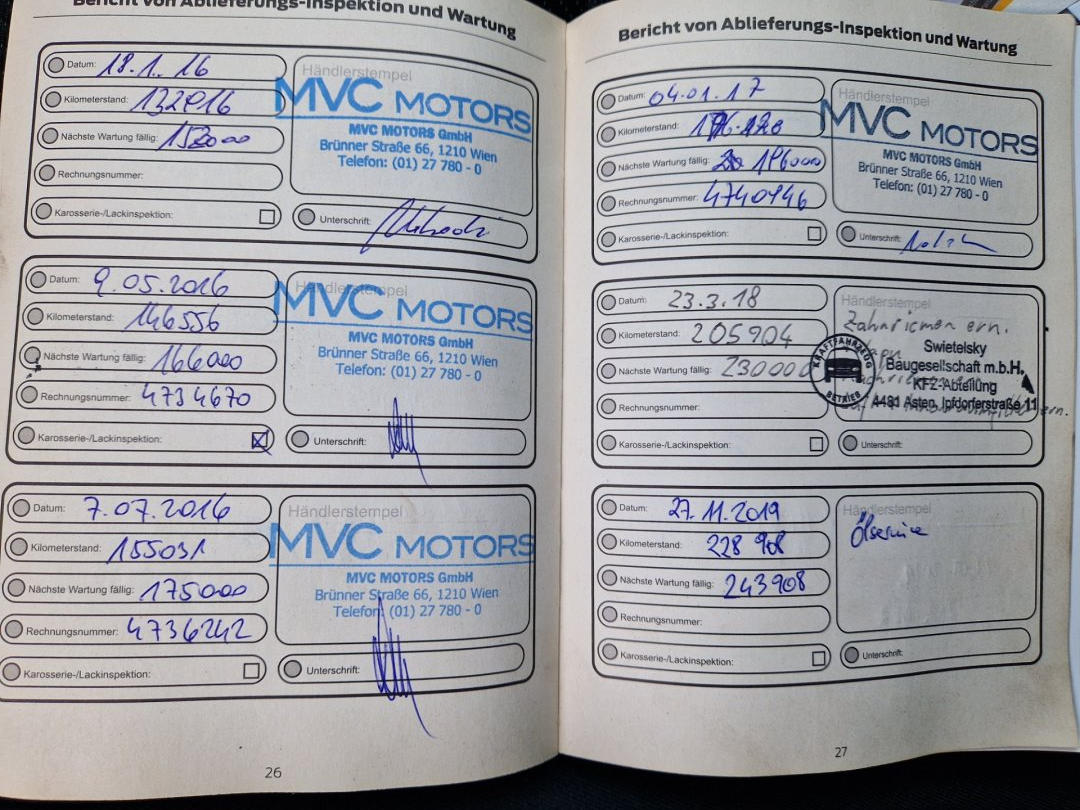 Bericht von Ablieferungs-Inspektion und Wartung
Datum: 18.1. 16
Kilometerstand: 132816
Nächste Wartung fällig: 152000
Rechnungsnummer:
Karosserie-/Lackinspektion:
Händlerstempel
MVC MOTORS
MVC MOTORS GmbH
Brünner Straße 66, 1210 Wien
Telefon: (01) 27 780 - 0
Unterschrift:
Datum: 9.05.2016
Kilometerstand: 146556
Nächste Wartung fällig: 166000
Rechnungsnummer: 4734670
Karosserie-/Lackinspektion:
Händlerstempel
MVC MOTORS
MVC MOTORS GmbH
Brünner Straße 66, 1210 Wien
Telefon: (01) 27 780 - 0
Unterschrift:
Datum: 7.07.2016
Kilometerstand: 155031
Nächste Wartung fällig: 175000
Rechnungsnummer: 4736242
Karosserie-/Lackinspektion:
Händlerstempel
MVC MOTORS
MVC MOTORS GmbH
Brünner Straße 66, 1210 Wien
Telefon: (01) 27 780 - 0
Unterschrift:
26
Bericht von Ablieferungs-Inspektion und Wartung
Datum: 04.01.17
Kilometerstand:
Nächste Wartung fällig: 196000
Rechnungsnummer: 4740946
Karosserie-/Lackinspektion:
Händlerstempel
MVC MOTORS
MVC MOTORS GmbH
Brünner Straße 66, 1210 Wien
Telefon: (01) 27 780 - 0
Unterschrift:
Datum: 23.3.18
Kilometerstand: 205904
Nächste Wartung fällig: 230000
Rechnungsnummer:
Karosserie-/Lackinspektion:
Händlerstempel
Zahnriemen ern.
KRAFTFAHRZEUG
BETRIEB
Swietelsky
Baugesellschaft m.b.H.
KFZ-Abteilung
4481 Asten, Ipfdorferstraße 11
Unterschrift:
Datum: 27.11.2019
Kilometerstand: 228 908
Nächste Wartung fällig: 243908
Rechnungsnummer:
Karosserie-/Lackinspektion:
Händlerstempel
Ölservice
Unterschrift:
27